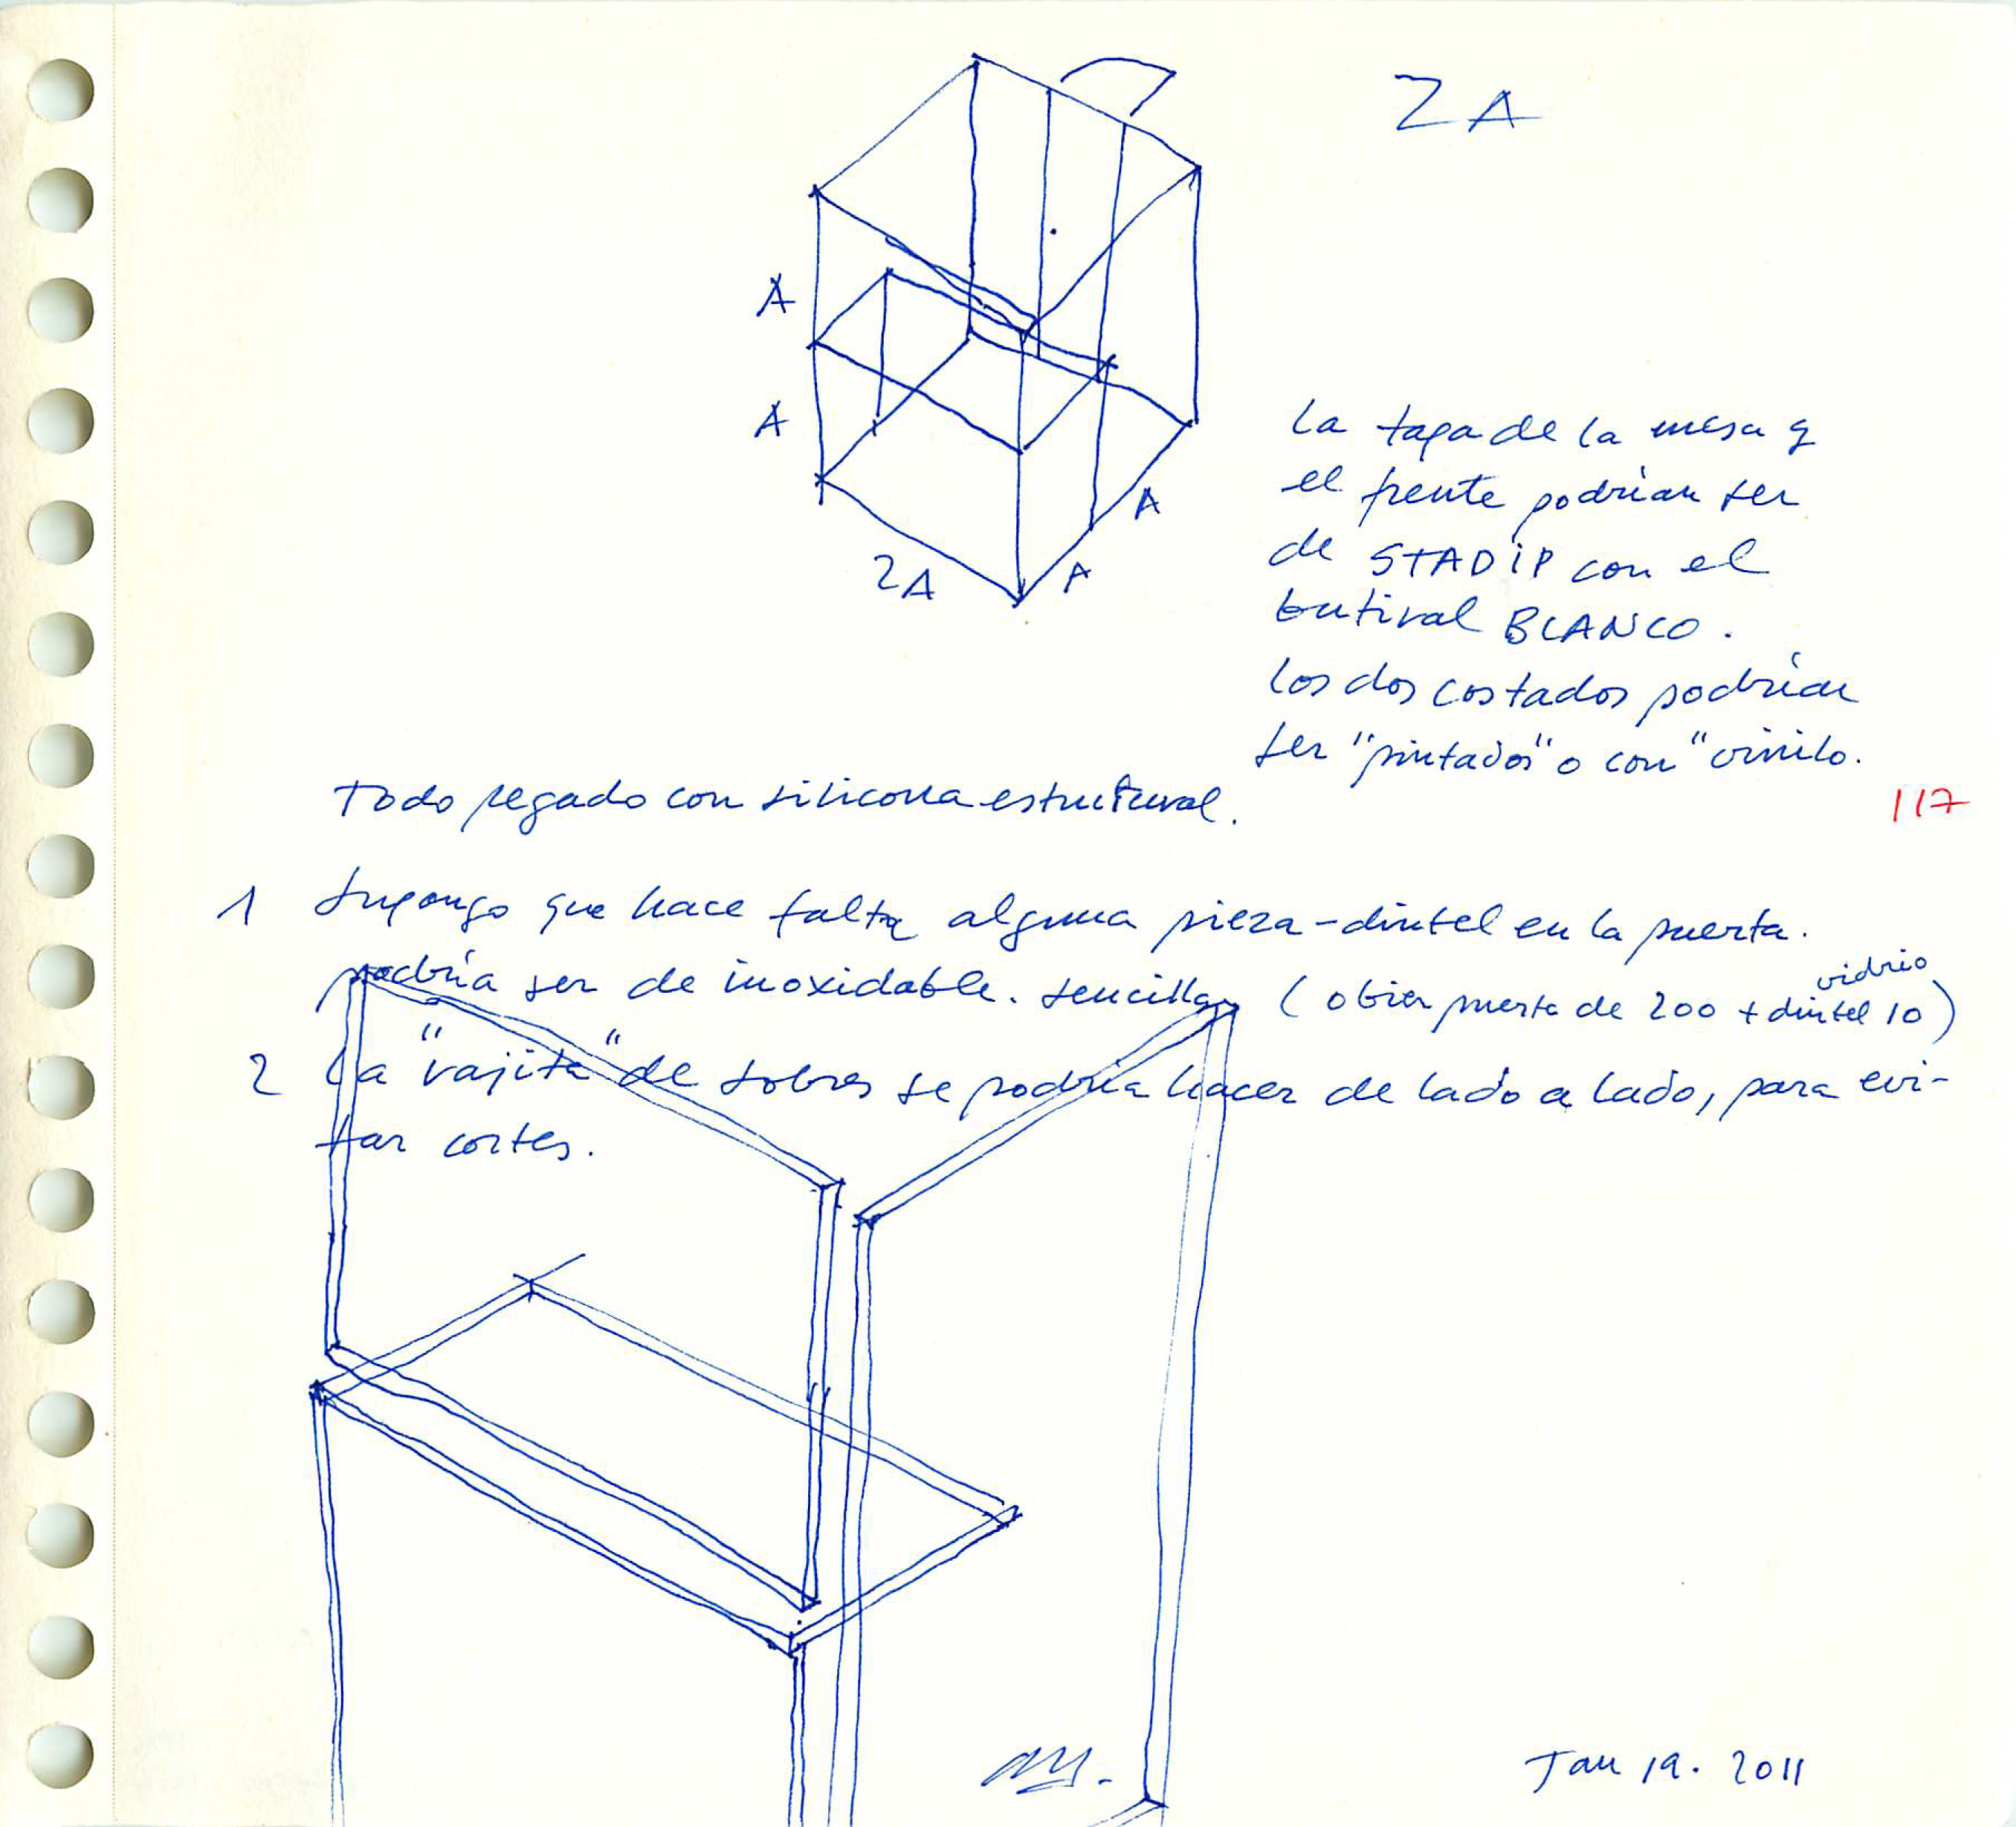 2A
A
A
2A
A
A
La tapa de la mesa y
el frente podrían ser
de STADIP con el
butiral BLANCO.
Los dos costados podrían
ser "pintados" o con "vinilo.
Todo pegado con silicona estructural.
117
1 Supongo que hace falta alguna pieza-dintel en la puerta.
podría ser de inoxidable. sencilla (o bien puerta de 200 + dintel vidrio 10)
2 La "rajita" de sobres se podría hacer de lado a lado, para evi-
tar cortes.
Jan 19. 2011